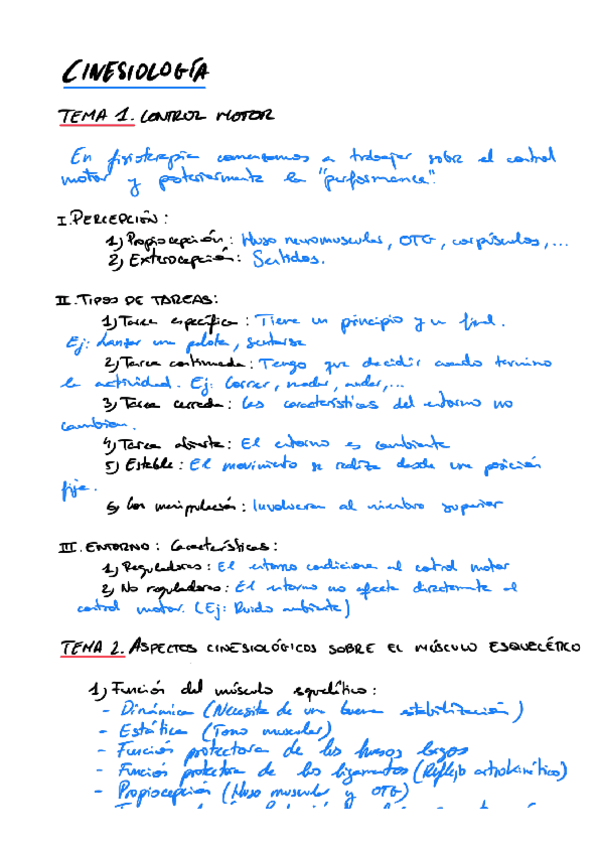 CINESIOLOGÍA
TEMA 1. CONTROL MOTOR
En fisioterapia comenzamos a trabajar sobre el control
motor y posteriormente la "performance".
I. PERCEPCIÓN:
1) Propiocepción: Huso neuromuscular, OTG, corpúsculos,...
2) Exterocepción: Sentidos.
II. TIPOS DE TAREAS:
1) Tarea específica: Tiene un principio y un final.
Ej: Lanzar una pelota, sentarse
2) Tarea continuada: Tengo que decidir cuando termino
la actividad. Ej: Correr, nadar, andar,...
3) Tarea cerrada: Las características del entorno no
cambian.
4) Tarea abierta: El entorno es cambiante
5) Estable: El movimiento se realiza desde una posición
fija.
6) Con manipulación: Involucran al miembro superior
III. ENTORNO: Características:
1) Reguladores: El entorno condiciona el control motor
2) No reguladores: El entorno no afecta directamente al
control motor. (Ej: Ruido ambiente)
TEMA 2. ASPECTOS CINESIOLÓGICOS SOBRE EL MÚSCULO ESQUELÉTICO
1) Función del músculo esquelético:
- Dinámica (Necesita de una buena estabilización)
- Estática (Tono muscular)
- Función protectora de los huesos largos
- Función protectora de los ligamentos (Reflejo artrokinético)
- Propiocepción (Huso muscular y OTG)